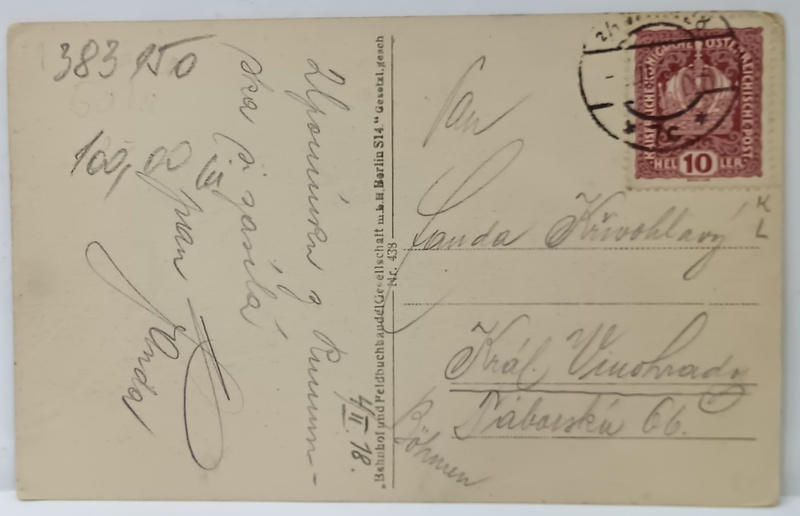 383 150
100,00
Upomínku z Rumun-
ska si zasílá
pran
Janda
4/II. 18.
„Bahnhof und Feldbuchhandel Gesellschaft m.b.H. Berlin S14.“ Gesetzl. gesch
Nr. 438
KAISERLICHE KÖNIGLICHE ÖSTERREICHISCHE POST
HELLER 10
Pan
Landa Křivohlavý
K
L
Král. Vinohrady
Táborská 66.
Böhmen